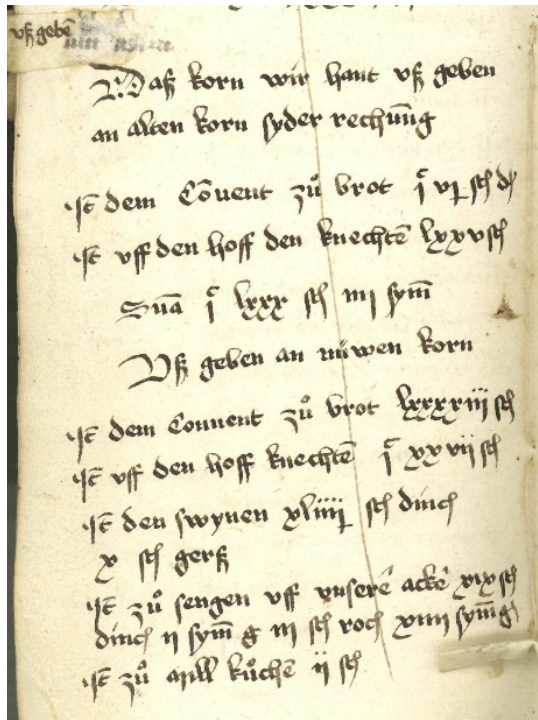 vß gebē
Daß korn wir hant vß geben
an alten korn syder rechūng
Jt dem Cōuent zů brot
Jt vff den hoff den knechtē lxxv sch
Sūa lxxx sch iiij sym̄
Vß geben an nüwen korn
Jt dem Conuent zů brot lxxxxiij sch
Jt vff den hoff knechtē xxvij sch
Jt den swynen sch dinck
x sch gerst
Jt zů sengen vff vnserē ackē xix sch
dinck ij sym̄ g iij sch rock xiiij sym̄ g
Jt zů kůchē ij sch